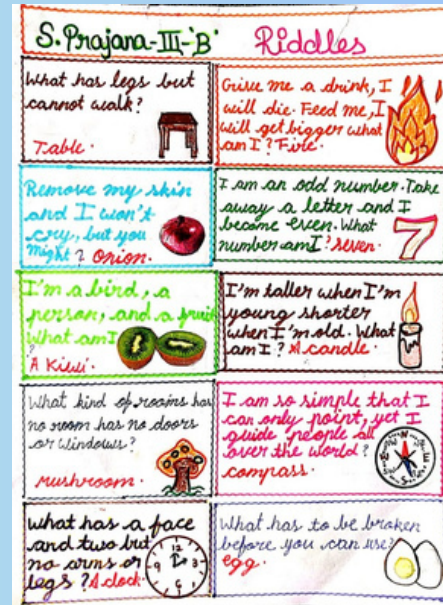 S. Prajana-III-'B' Riddles
What has legs but
cannot walk?
Table.
Give me a drink, I
will die. Feed me, I
will get bigger what
am I? Fire.
Remove my skin
and I won't
cry, but you
might? Onion.
I am an odd number. Take
away a letter and I
become even. What
number am I? seven.
7
I'm a bird, a
person, and a fruit
What am I
?
'A Kiwi'.
I'm taller when I'm
young shorter
when I'm old. What
am I? A candle.
What kind of rooms has
no room has no doors
or windows?
mushroom.
I am so simple that I
can only point, yet I
guide people all
over the world?
compass.
N
E
S
What has a face
and two but
no arms or
legs? A clock.
12
9 3
6
What has to be broken
before you can use?
egg.